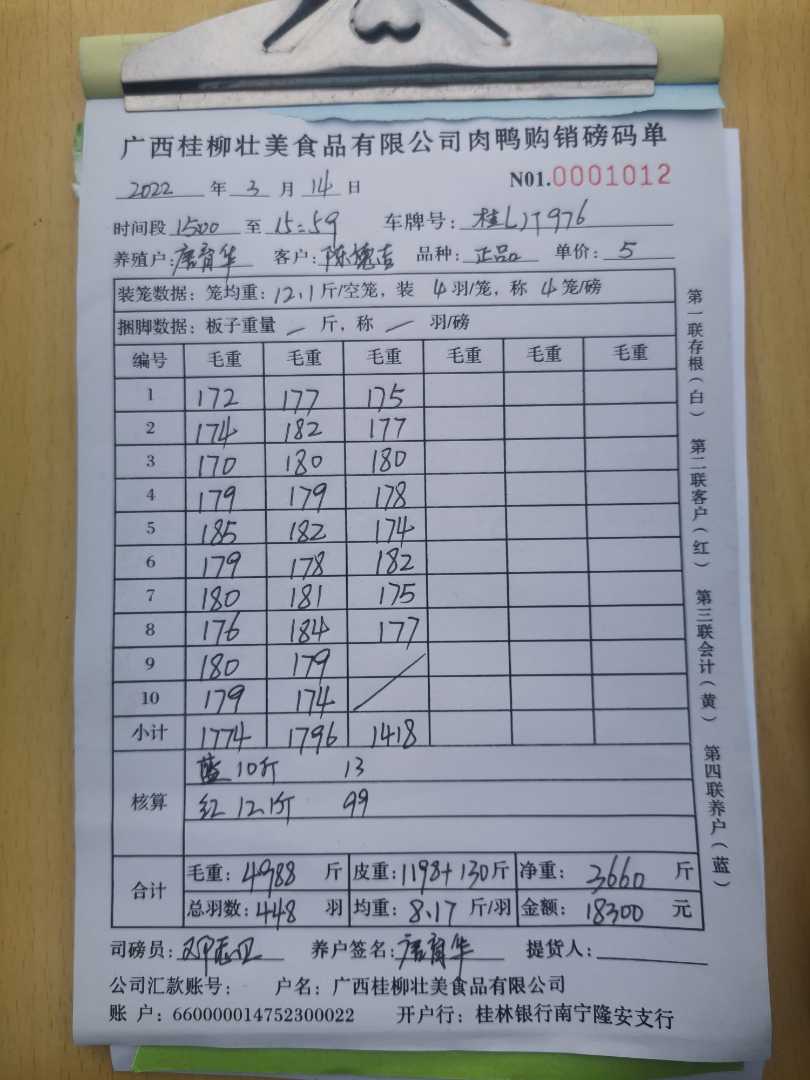 广西桂柳壮美食品有限公司肉鸭购销磅码单
2022 年 3 月 14 日 N01.0001012
时间段 1500 至 15:59 车牌号: 桂LJT976
养殖户: 唐育华 客户: 陈槐吉 品种: 正品 单价: 5
装笼数据: 笼均重: 12.1 斤/空笼, 装 4 羽/笼, 称 4 笼/磅
捆脚数据: 板子重量 — 斤, 称 — 羽/磅
编号 毛重 毛重 毛重 毛重 毛重 毛重
1 172 177 175
2 174 182 177
3 170 180 180
4 179 179 178
5 185 182 174
6 179 178 182
7 180 181 175
8 176 184 177
9 180 179
10 179 174
小计 1774 1796 1418
核算
蓝 10斤 13
红 12.1斤 99
合计
毛重: 4988 斤 皮重: 1198+130斤 净重: 3660 斤
总羽数: 448 羽 均重: 8.17 斤/羽 金额: 18300 元
司磅员: 养户签名: 唐育华 提货人:
公司汇款账号: 户名: 广西桂柳壮美食品有限公司
账 户: 660000014752300022 开户行: 桂林银行南宁隆安支行
第一联存根(白) 第二联客户(红) 第三联会计(黄) 第四联养户(蓝)